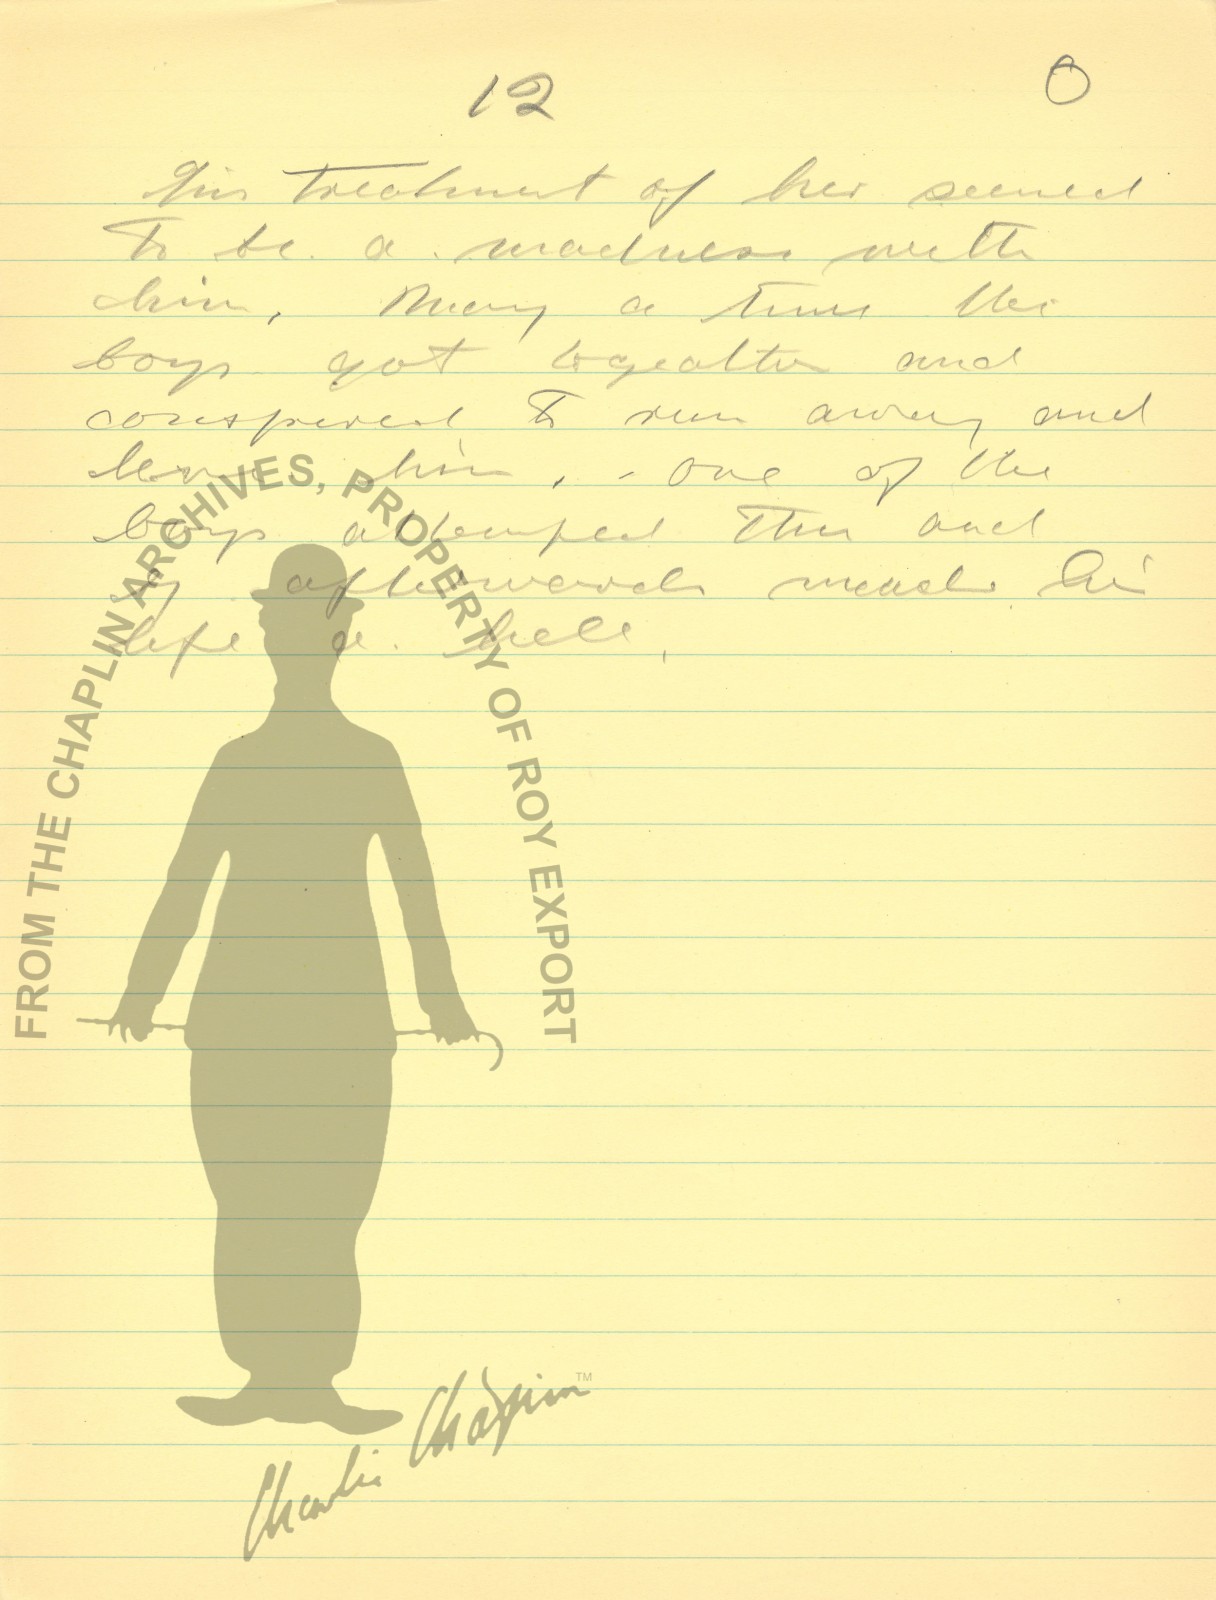 12
O
His treatment of her seemed
To be a madness with
him, Many a time the
boys got togeather and
conspired to run away and
leave him, - one of the
boys attemped this and
afterwards made his
life a hell.
FROM THE CHAPLIN ARCHIVES, PROPERTY OF ROY EXPORT
Charlie Chaplin™